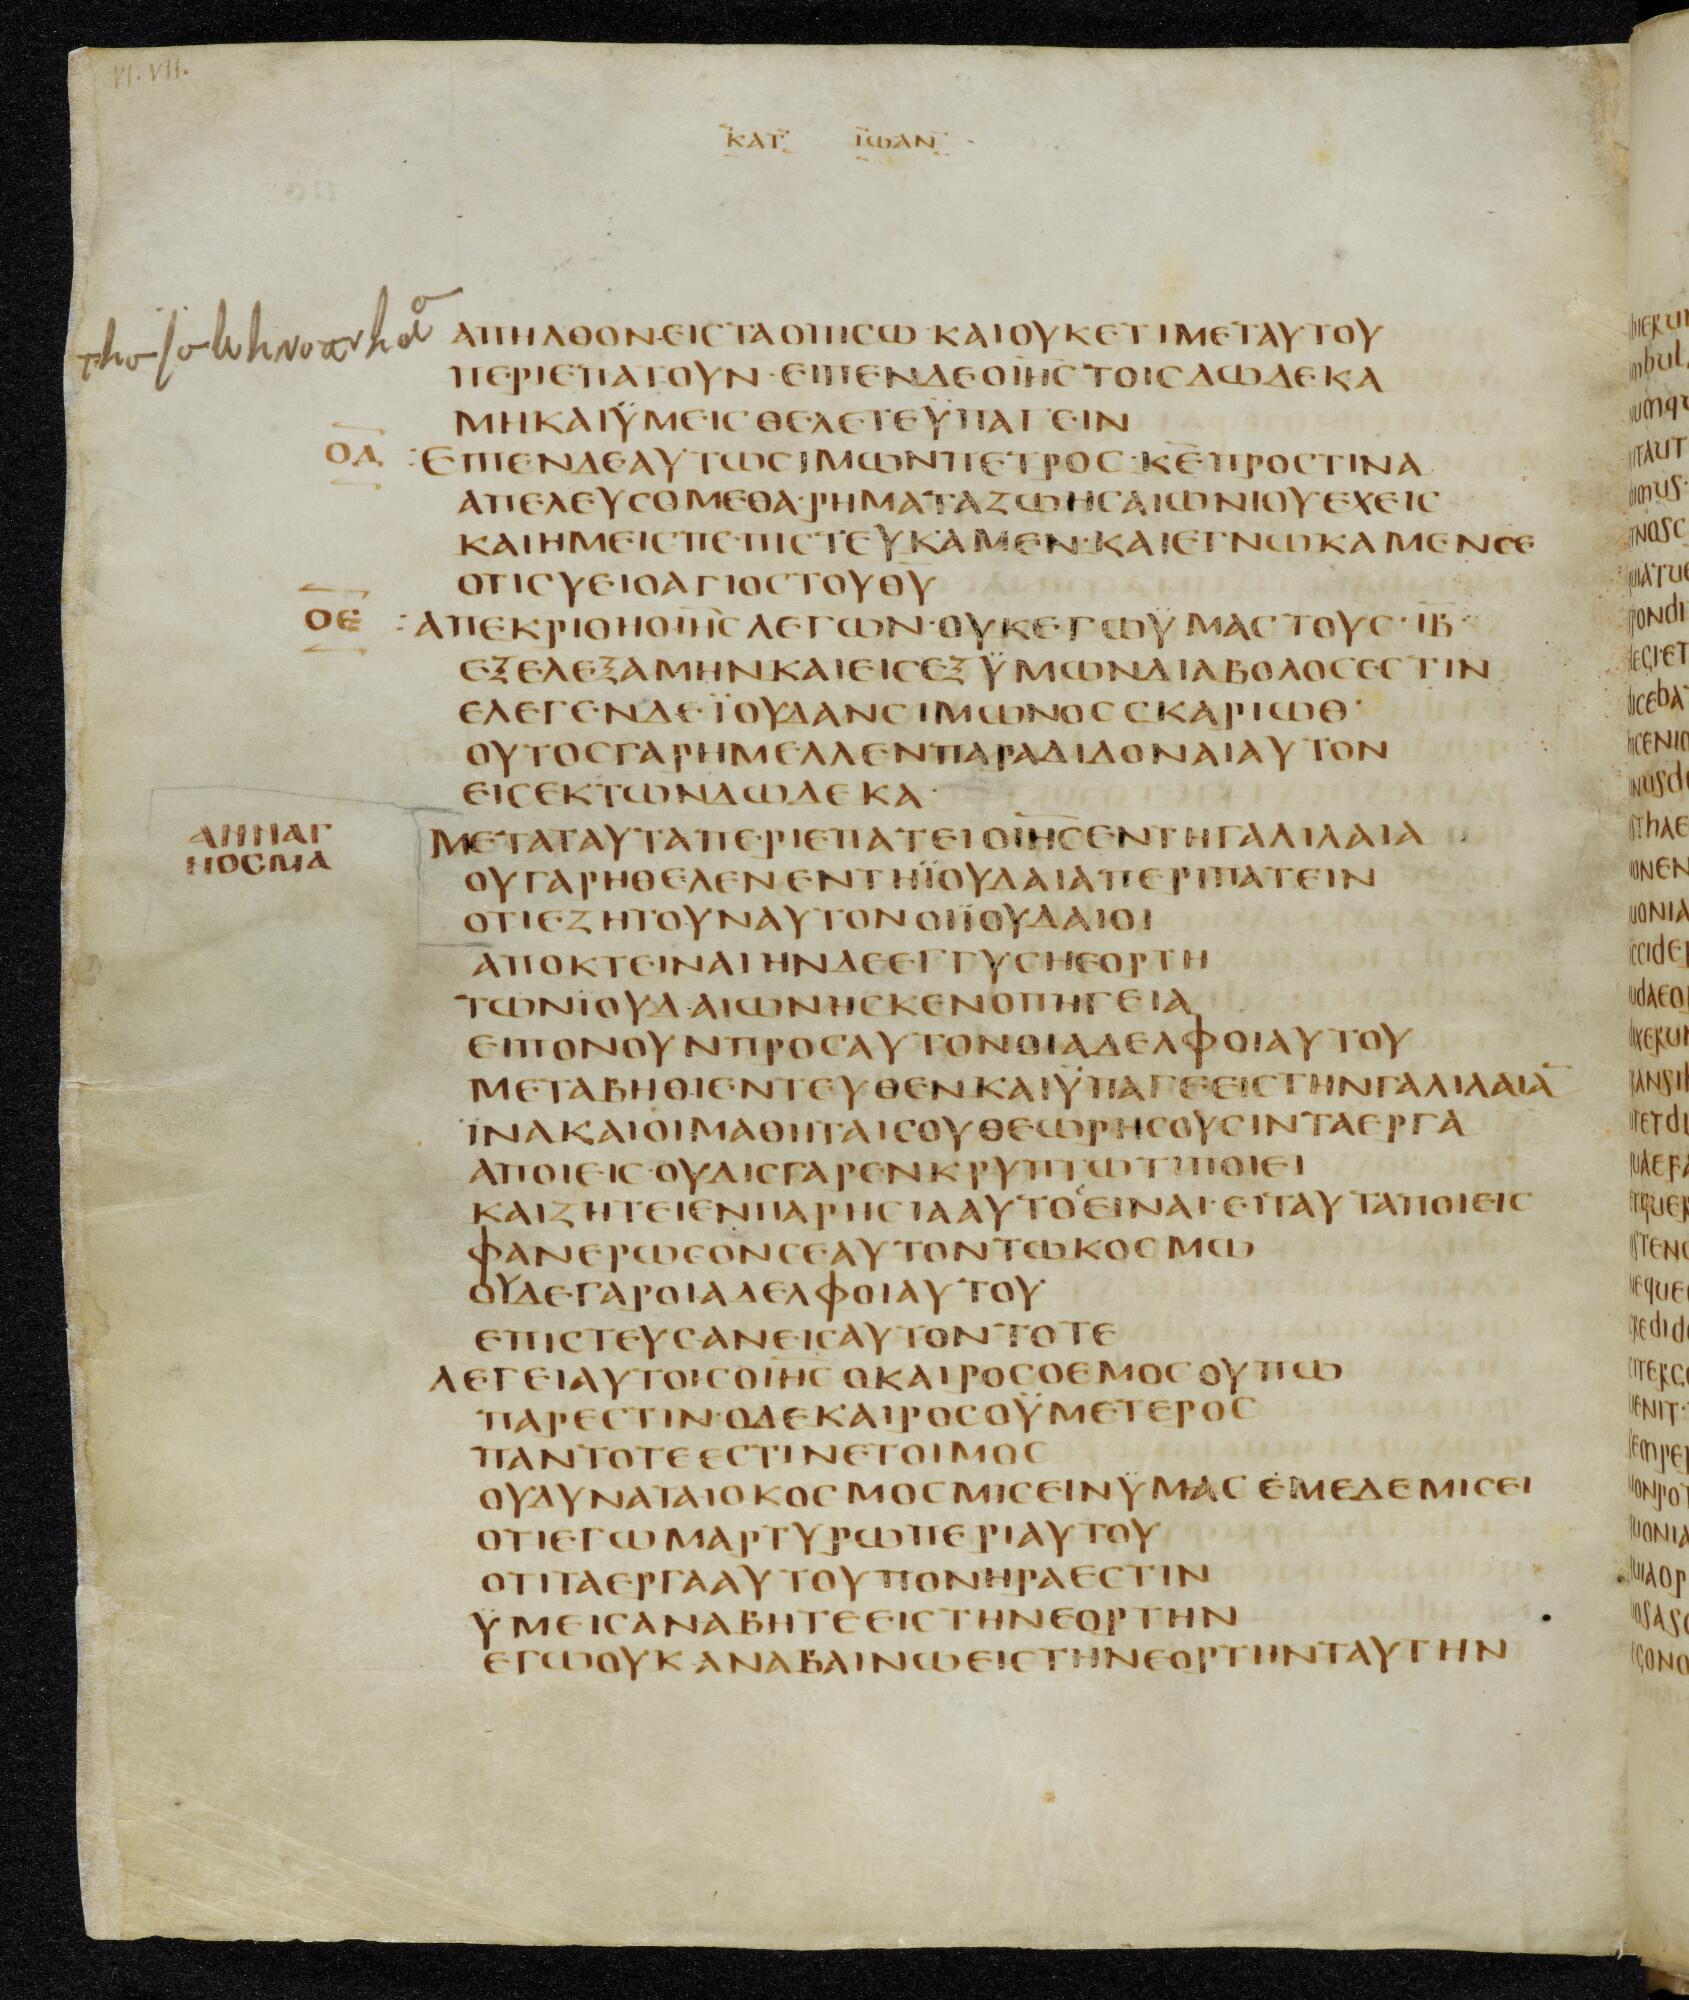 VI. VII.
ΚΑΤ ΙΩΑΝ
ΑΠΗΛΘΟΝ·ΕΙΣΤΑΟΠΙΣΩ·ΚΑΙΟΥΚΕΤΙΜΕΤΑΥΤΟΥ
ΠΕΡΙΕΠΑΤΟΥΝ·ΕΙΠΕΝΔΕΟΙΗΣΤΟΙΣΔΩΔΕΚΑ
ΜΗΚΑΙΫΜΕΙΣΘΕΛΕΤΕΫΠΑΓΕΙΝ
ΟΔ :ΕΠΙΕΝΔΕΑΥΤΩΣΙΜΩΝΠΕΤΡΟΣ·ΚΕΠΡΟΣΤΙΝΑ
ΑΠΕΛΕΥΣΟΜΕΘΑ·ΡΗΜΑΤΑΖΩΗΣΑΙΩΝΙΟΥΕΧΕΙΣ
ΚΑΙΗΜΕΙΣΠΕΠΙΣΤΕΥΚΑΜΕΝ·ΚΑΙΕΓΝΩΚΑΜΕΝΣΕ
ΟΤΙΣΥΕΙΟΑΓΙΟΣΤΟΥΘΥ
ΟΕ :ΑΠΕΚΡΙΘΗΟΙΗΣΛΕΓΩΝ·ΟΥΚΕΓΩΫΜΑΣΤΟΥΣ·ΙΒ·
ΕΞΕΛΕΞΑΜΗΝΚΑΙΕΙΣΕΞΫΜΩΝΔΙΑΒΟΛΟΣΕΣΤΙΝ
ΕΛΕΓΕΝΔΕΪΟΥΔΑΝΣΙΜΩΝΟΣΣΚΑΡΙΩΘ·
ΟΥΤΟΣΓΑΡΗΜΕΛΛΕΝΠΑΡΑΔΙΔΟΝΑΙΑΥΤΟΝ
ΕΙΣΕΚΤΩΝΔΩΔΕΚΑ·
ΑΝΝΑΓ
ΝΟΣΜΑ
ΜΕΤΑΤΑΥΤΑΠΕΡΙΕΠΑΤΕΙΟΙΗΣΕΝΤΗΓΑΛΙΛΑΙΑ
ΟΥΓΑΡΗΘΕΛΕΝΕΝΤΗΪΟΥΔΑΙΑΠΕΡΙΠΑΤΕΙΝ
ΟΤΙΕΖΗΤΟΥΝΑΥΤΟΝΟΙΪΟΥΔΑΙΟΙ
ΑΠΟΚΤΕΙΝΑΙΗΝΔΕΕΓΓΥΣΗΕΟΡΤΗ
ΤΩΝΙΟΥΔΑΙΩΝΗΣΚΕΝΟΠΗΓΕΙΑ
ΕΙΠΟΝΟΥΝΠΡΟΣΑΥΤΟΝΟΙΑΔΕΛΦΟΙΑΥΤΟΥ
ΜΕΤΑΒΗΘΙΕΝΤΕΥΘΕΝΚΑΙΫΠΑΓΕΕΙΣΤΗΝΓΑΛΙΛΑΙᾹ
ΪΝΑΚΑΙΟΙΜΑΘΗΤΑΙΣΟΥΘΕΩΡΗΣΟΥΣΙΝΤΑΕΡΓΑ
ΑΠΟΙΕΙΣ·ΟΥΔΙΣΓΑΡΕΝΚΡΥΠΤΩΤΙΠΟΙΕΙ
ΚΑΙΖΗΤΕΙΕΝΠΑΡΗΣΙΑΑΥΤΟΕΙΝΑΙ·ΕΙΤΑΥΤΑΠΟΙΕΙΣ
ΦΑΝΕΡΩΣΟΝΣΕΑΥΤΟΝΤΩΚΟΣΜΩ
ΟΥΔΕΓΑΡΟΙΑΔΕΛΦΟΙΑΥΤΟΥ·
ΕΠΙΣΤΕΥΣΑΝΕΙΣΑΥΤΟΝΤΟΤΕ
ΛΕΓΕΙΑΥΤΟΙΣΟΙΗΣΟΚΑΙΡΟΣΟΕΜΟΣΟΥΠΩ
ΠΑΡΕΣΤΙΝ·ΟΔΕΚΑΙΡΟΣΟΫΜΕΤΕΡΟΣ
ΠΑΝΤΟΤΕΕΣΤΙΝΕΤΟΙΜΟΣ
ΟΥΔΥΝΑΤΑΙΟΚΟΣΜΟΣΜΙΣΕΙΝΫΜΑΣΕΜΕΔΕΜΙΣΕΙ
ΟΤΙΕΓΩΜΑΡΤΥΡΩΠΕΡΙΑΥΤΟΥ
ΟΤΙΤΑΕΡΓΑΑΥΤΟΥΠΟΝΗΡΑΕΣΤΙΝ
ΫΜΕΙΣΑΝΑΒΗΤΕΕΙΣΤΗΝΕΟΡΤΗΝ
ΕΓΩΟΥΚΑΝΑΒΑΙΝΩΕΙΣΤΗΝΕΟΡΤΗΝΤΑΥΤΗΝ